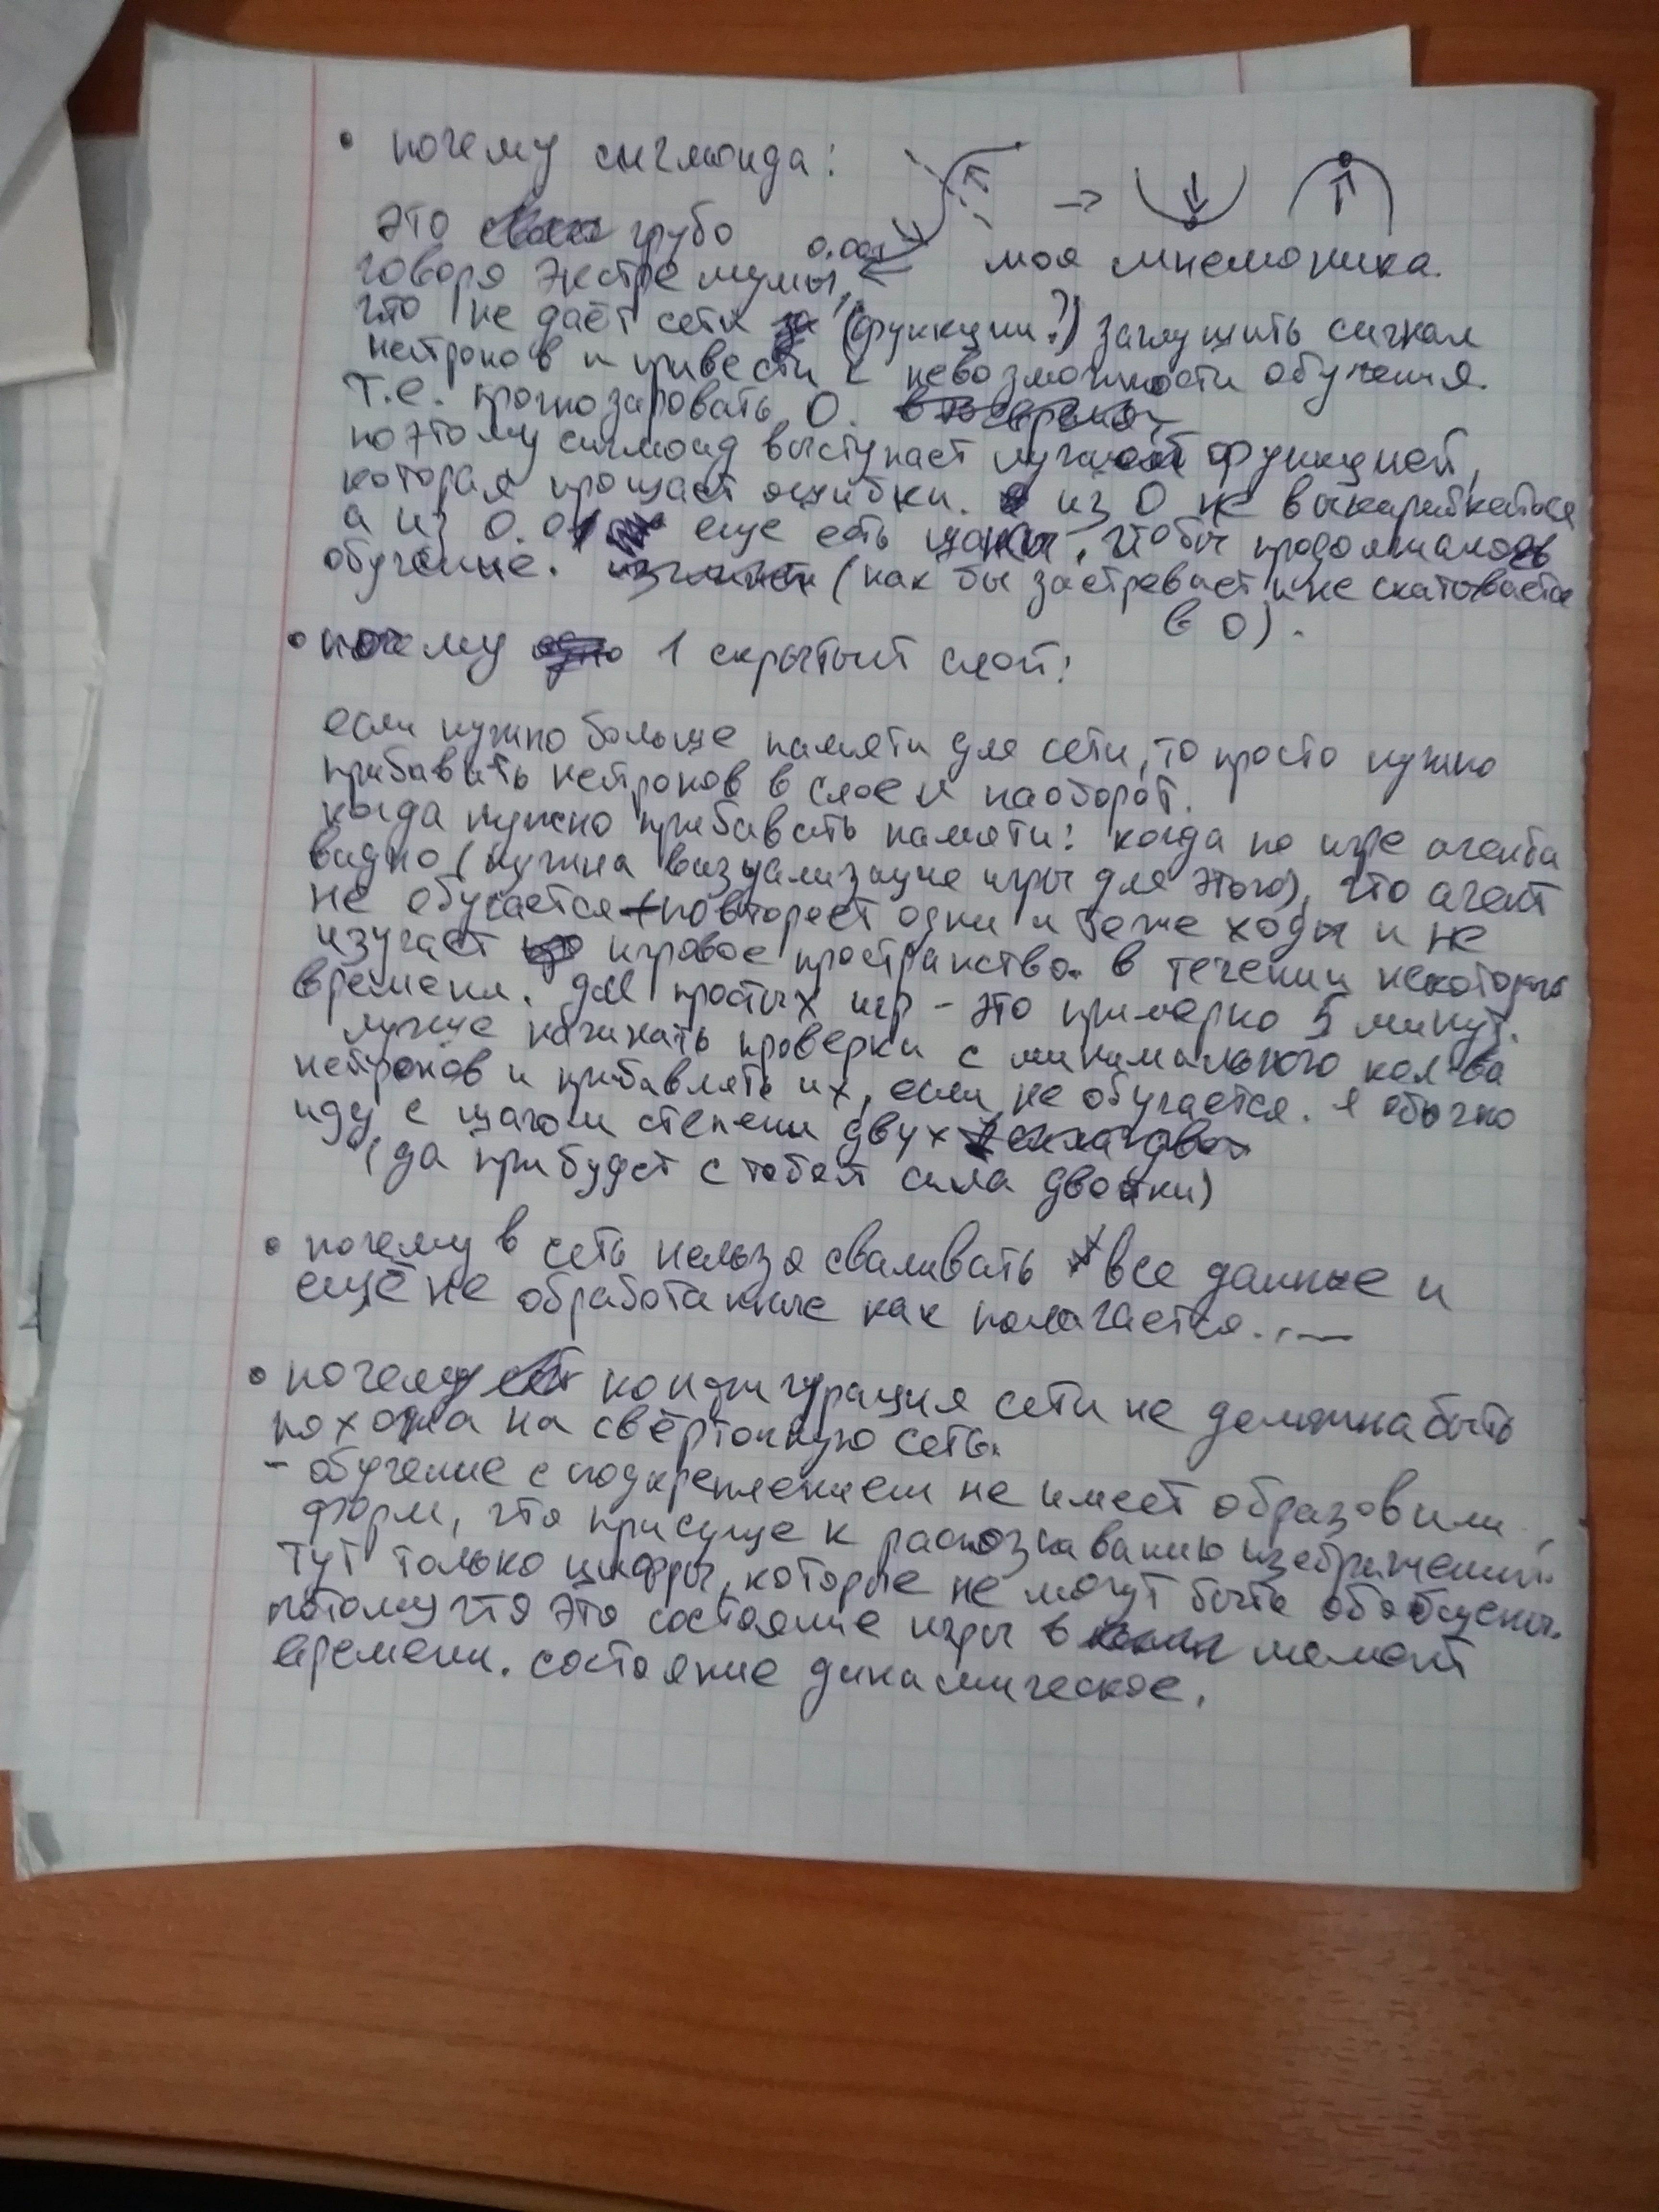 • почему сигмоида:
это грубо
0.001
говоря экстремумы,
→ моя мнемоника.
что не даёт сети (функции?) заглушить сигнал
нейронов и привести к невозможности обучения.
т.е. прогнозировать 0.
поэтому сигмоид выступает лучшей функцией,
которая прощает ошибки. из 0 не выкарабкаться
а из 0.01 еще есть шансы, чтобы продолжалось
обучение. (как бы застревает и не скатовается
в 0).
• почему 1 скрытый слой:
если нужно больше памяти для сети, то просто нужно
прибавить нейронов в слое и наоборот.
когда нужно прибавить памяти: когда по игре агента
видно (нужна визуализация игры для этого), что агент
не обучается повторяет одни и теже ходы и не
изучает игровое пространство. в течении некоторого
времени. для простых игр - это примерно 5 минут.
лучше начинать проверки с минимального кол-ва
нейронов и прибавлять их, если не обучается. я обычно
иду с шагом степени двух
(да прибудет с тобой сила двойки)
• почему в сеть нельзя сваливать все данные и
ещё не обработанные как полагается...
• почему конфигурация сети не должна быть
похожа на свёрточную сеть.
- обучение с подкреплением не имеет образов или
форм, что присуще к распознаванию изображений.
тут только цифры, которые не могут быть обобщены.
потому что это состояние игры в момент
времени. состояние динамическое.